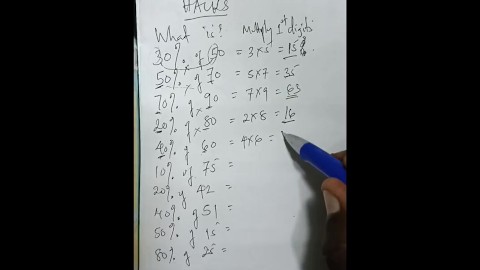 HACKS
What is? Multiply 1st digits
30% of 50 = 3×5 = 15
50% of 70 = 5×7 = 35
70% of 90 = 7×9 = 63
20% of 80 = 2×8 = 16
40% of 60 = 4×6 =
10% of 75 =
20% of 42 =
40% of 51 =
50% of 15 =
80% of 25 =